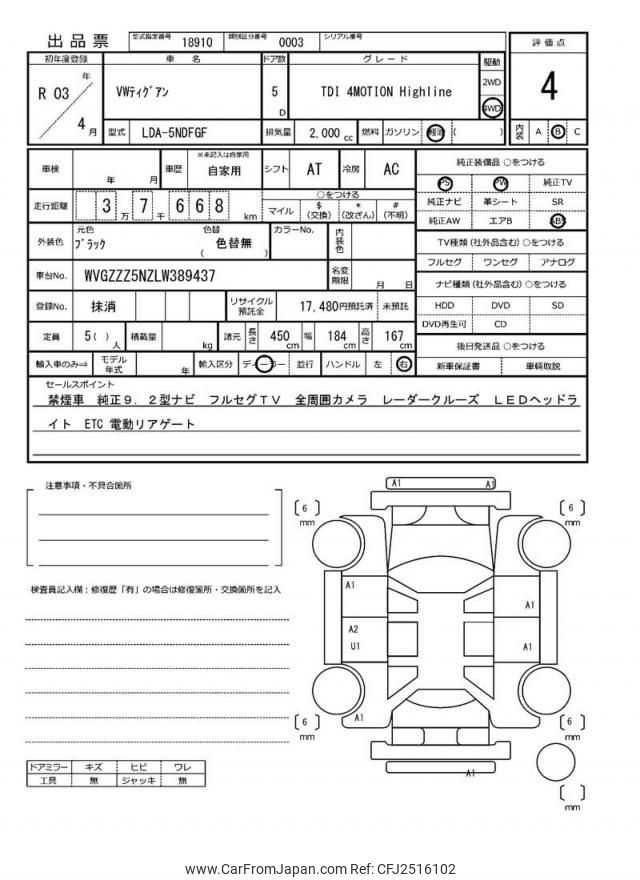 出品票 型式指定番号 18910 類別区分番号 0003 シリアル番号
初年度登録 車名 ドア数 グレード 駆動 評価点
R 03 年 4 月 VWティグアン 5 D TDI 4MOTION Highline 2WD 4WD 4
型式 LDA-5NDFGF 排気量 2,000 cc 燃料 ガソリン 軽油 ( ) 内装 A B C
車検 年 月 車歴 ※未記入は自家用 自家用 シフト AT 冷房 AC
走行距離 3 万 7 千 6 6 8 km ○をつける
マイル $ (交換) * (改ざん) # (不明)
外装色 元色 ブラック 色替 ( 色替無 ) カラーNo. 内装色
車台No. WVGZZZ5NZLW389437 名変期限 月 日
登録No. 抹消 リサイクル預託金 17,480円預託済 未預託
定員 5( ) 人 積載量 kg 諸元 長さ 450 cm 幅 184 cm 高さ 167 cm
輸入車のみ⇒ モデル年式 年 輸入区分 ディーラー 並行 ハンドル 左 右
純正装備品 ○をつける
PS PW 純正TV
純正ナビ 革シート SR
純正AW エアB ABS
TV種類 (社外品含む) ○をつける
フルセグ ワンセグ アナログ
ナビ種類 (社外品含む) ○をつける
HDD DVD SD
DVD再生可 CD
後日発送品 ○をつける
新車保証書 車輌取説
セールスポイント
禁煙車 純正9.2型ナビ フルセグTV 全周囲カメラ レーダークルーズ LEDヘッドラ
イト ETC 電動リアゲート
注意事項・不具合箇所
検査員記入欄：修復歴「有」の場合は修復箇所・交換箇所を記入
ドアミラー キズ ヒビ ワレ
工具 無 ジャッキ 無
A1 A1
[ 6 ] mm [ 6 ] mm
A1 A1
A2
U1 A1
A1
[ 6 ] mm [ 6 ] mm
A1
[ ] mm
www.CarFromJapan.com Ref: CFJ2516102